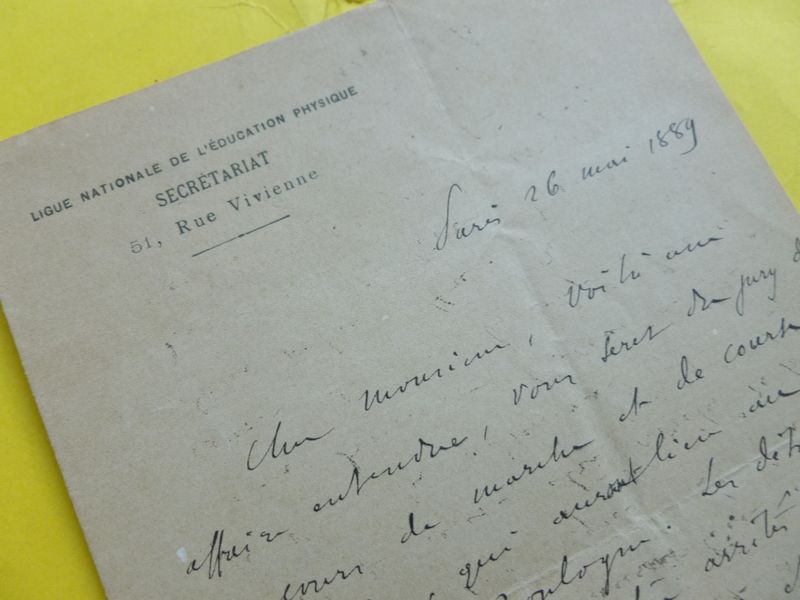 LIGUE NATIONALE DE L'ÉDUCATION PHYSIQUE
SECRÉTARIAT
51, Rue Vivienne
Paris 26 mai 1889
Cher monsieur, Voilà une
affaire entendue, vous serez du jury d
cours de marche et de course
qui auront lieu au
Boulogne. Les dét
arrêté